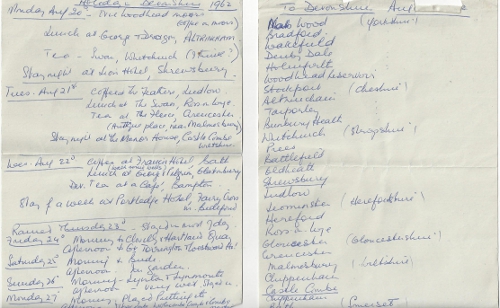 Holiday Devonshire 1962
Monday Aug 20th - Over Woodhead moors
Lunch at George & Dragon, ALTRINCHAM
Tea - Swan, Whitchurch (I think?)
Stay night at Lion Hotel, Shrewsbury.
Tues. Aug 21st Coffee The Feathers, Ludlow.
Lunch at The Swan, Ross on Wye.
Tea at The Fleece, Cirencester
(Antique place, near Malmesbury)
Stay night at The Manor House, Castle Combe
Wiltshire
Wed. Aug 22nd Coffee at Francis Hotel, Bath
Lunch at George & Pilgrim, Glastonbury
Dev. Tea at a Café, Bampton.
Stay for a week at Portledge Hotel, Fairy Cross
nr. Bideford
Rained Thursday 23rd Stayed in most of day.
Friday 24th Morning to Clovelly & Hartland Quay
Afternoon to Torrington
Saturday 25th Morning to Bude.
Afternoon in garden.
Sunday 26th Morning - Lynton & Lynmouth
Afternoon -
Monday 27th Morning, Played Putting etc
To Devonshire Aug
Wood (Yorkshire)
Bradford
Wakefield
Denby Dale
Holmfirth
Woodhead Reservoir
Stockport (Cheshire)
Altrincham
Tarporley
Bunbury Heath
Whitchurch (Shropshire)
Prees
Battlefield
Shrewsbury
Ludlow
Leominster (Herefordshire)
Hereford
Ross on Wye
Gloucester (Gloucestershire)
Cirencester
Malmesbury (Wiltshire)
Chippenham
Castle Combe
Chippenham
(Somerset)